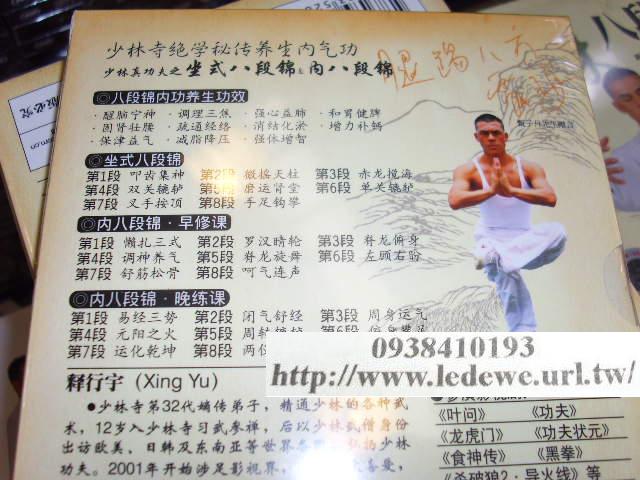 少林寺绝学秘传养生内气功
少林真功夫之坐式八段锦&内八段锦
◎八段锦内功养生功效
·醒脑宁神 ·调理三焦 ·强心益肺 ·和胃健脾
·固肾壮腰 ·疏通经络 ·消结化淤 ·增力补钙
·保津益气 ·减脂降压 ·强体增智
◎坐式八段锦
第1段 叩齿集神 第2段 微摇天柱 第3段 赤龙搅海
第4段 双关辘轳 第5段 磨运肾堂 第6段 单关辘轳
第7段 叉手按顶 第8段 手足钩攀
◎内八段锦·早修课
第1段 懒扎三式 第2段 罗汉晴轮 第3段 脊龙俯身
第4段 调神养气 第5段 脊龙旋舞 第6段 左顾右盼
第7段 舒筋松骨 第8段 呵气连声
◎内八段锦·晚练课
第1段 易经三势 第2段 闭气舒经 第3段 周身运气
第4段 元阳之火 第5段 周转辘轳 第6段
第7段 运化乾坤 第8段
0938410193
http://www.ledewe.url.tw/
释行宇（Xing Yu）
●少林寺第32代嫡传弟子，精通少林的各种武
术，12岁入少林寺习武参禅，后以少林武僧身份
出访欧美、日韩及东南亚等世界各
功夫。2001年开始涉足影视界，
《叶问》 《功夫》
《龙虎门》 《功夫状元》
《食神传》 《黑拳》
《杀破狼2·导火线》等